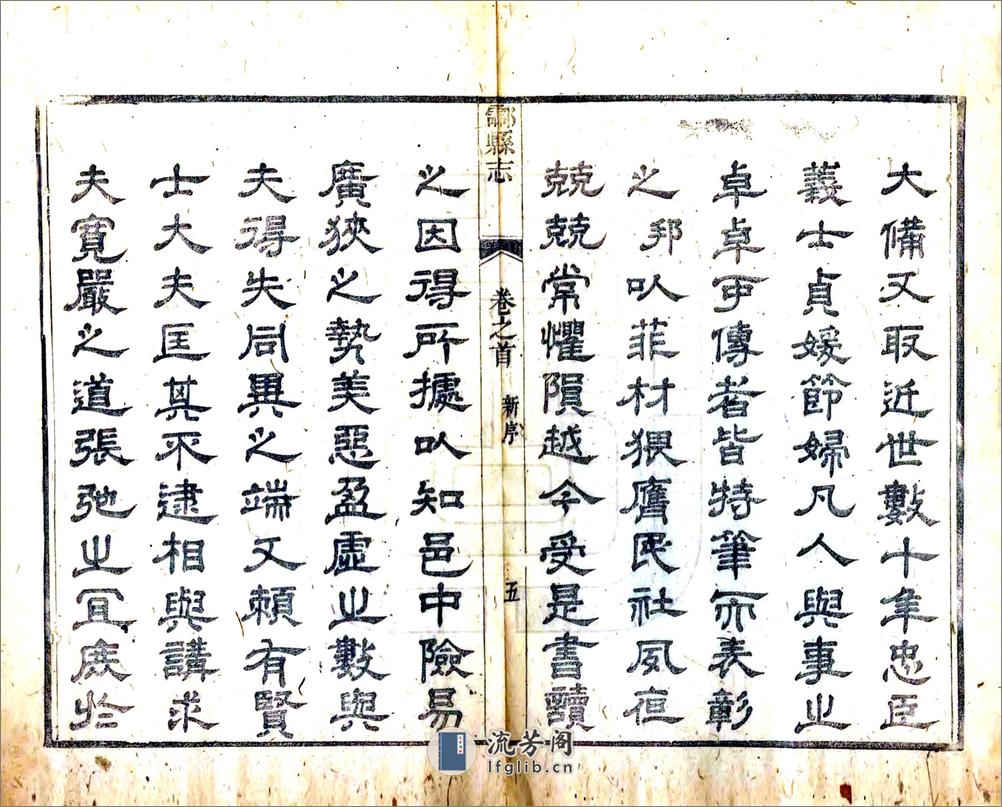 大備又取近世數十年忠臣
義士貞媛節婦凡人與事之
卓卓可傳者皆特筆而表彰
之邦以菲材猥膺民社夙夜
兢兢常懼隕越今受是書讀
鄠縣志
卷之首
新序
五
之因得所據以知邑中險易
廣狹之勢美惡盈虛之數與
夫得失同異之端又賴有賢
士大夫匡其不逮相與講求
夫寬嚴之道張弛之宜庶於
流芳阁
lfglib.cn